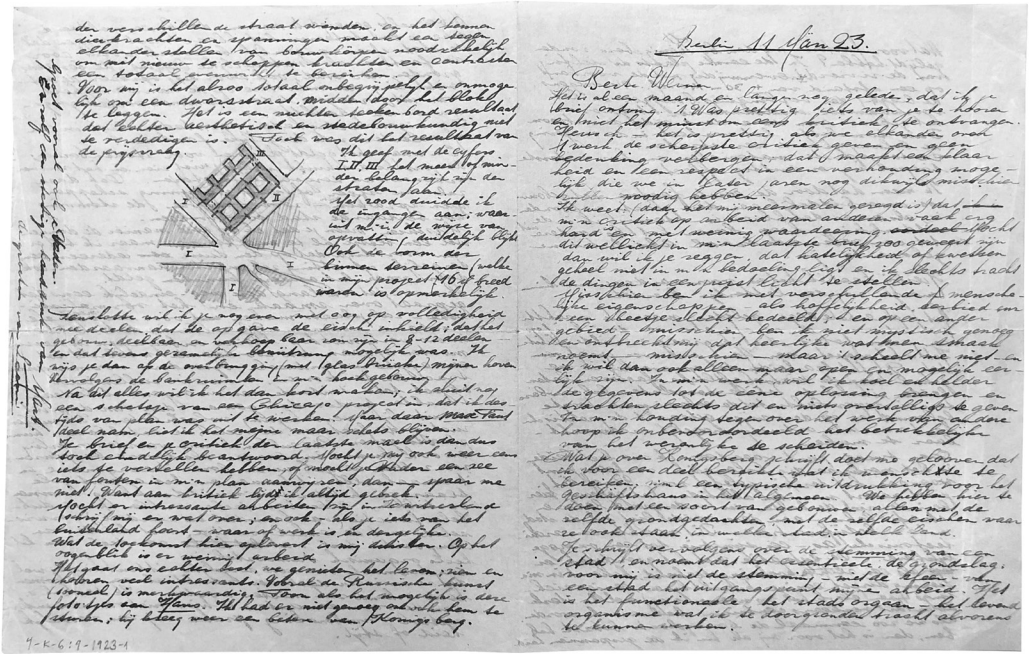 der verschillende straat wanden, en het kennen
die krachten en spanningen maakt een tegen
elkander stellen van bouwkörpen noodzakelijk
om met nieuw te scheppen krachten en contrasten
een totaal evenwicht te bereiken.
Voor mij is het alzoo totaal onbegrijpelijk en onmoge-
lijk om een dwarsstraat, midden door het blok
te leggen. Het is een nuchter teekenbord resultaat
dat echter aesthetisch en stedebouwkundig niet
te verdedigen is. Toch was dat het resultaat van
de prijsvraag.
Ik geef met de cijfers
I II III het meest of min-
der belangrijk zijn der
straten aan.
Het rood duidde ik
de ingangen aan; waar
uit mijn de wijze van
opvatting duidelijk blijkt
Ook de vorm der
binnen terreinen (welke
in mijn project 16 M breed
waren is opmerkelijk
III
I
II
I
I
I
Tenslotte wil ik je nog even met oog op volledigheid
mededeelen dat de opgave de eisch inhield; dat het
gebouw, deelbaar en verkoopbaar zou zijn in 8-12 deelen
en dat tevens gezamelijke benutzung mogelijk was. Ik
wijs je dan op de overbrugging (met glas brücke) mijner hoven
Na dit alles wil ik het dan kort maken, ik sluit nog
een schetsje van een Chicago project in dat ik des
tijds van plan was uit te werken, maar daar Mad. Taut
deel nam, liet ik het mijne maar schets blijven.
Je brief en je critiek der laatste maal is dan dus
toch eindelijk beantwoord. Mocht je mij ook weer eens
iets te vertellen hebben, of mocht je verder een zee
van fouten in m'n plan aanwijzen, dan – spaar me
niet! Want aan kritiek lijdt ik altijd gebrek.
Mocht er intressante arbeiten zijn in Zwitserland
schrijf mij er wat over; en ook als je iets van het
buitenland hoort, waar werk is en dergelijke.
Wat de toekomst hier oplevert is mij duister. Op het
oogenblik is er weinig arbeid.
Het gaat ons echter best, we genieten het leven; zien en
hooren veel intressants. Vooral de Russische kunst
(tooneel) is merkwaardig. Toon als het mogelijk is deze
fotootjes aan Hans. Ik had er niet genoeg om ook hem te
sturen; hij kreeg weer een beter van Königsberg.
Groet vooral ook Heiden.
En wees een stevige handdruk van Mart
de groeten van Leni.
Y-K-6:9-1923-1
Berlin 11 Jan 23.
Beste Werner
Het is al een maand en langer nog geleden, dat ik je
brief ontving. 't Was prettig iets van je te hooren
en niet het minst om eens kritiek te ontvangen.
Heusch – het is prettig, als we elkander over
't werk de scherpste critiek geven en geen
bedenking verbergen – dat maakt een klaar
heid en een respect in een verhouding moge-
lijk die we in later jaren nog dikwijls misschien
noodig hebben.
Ik weet, (daar het me meermalen gezegd is) dat
m'n critiek op arbeid van anderen vaak erg
hard en met weinig waardeering. Mocht
dit wellicht in m'n laatste brief zoo geweest zijn
dan wil ik je zeggen, dat hatelijkheid of kwetsen
geheel niet in m'n bedoeling ligt en ik slechts tracht
de dingen in een juist licht te stellen.
Misschien ben ik met verschillende mensche-
lijke eigenschappen – als hoffelijkheid, eerbied enz
een beetje slecht bedeeld; en op een ander
gebied – misschien ben ik niet mystisch genoeg
en ontbreekt mij dat heerlijke wat men smaak
noemt – misschien – maar 't scheelt me niet en
ik wil dan ook alleen maar open en mogelijk eer-
lijk zijn. In m'n werk wil ik koel en helder
de gegevens tot de eene oplossing brengen en
trachten slechts dit en niet overtolligs te geven
In m'n houding tegenover het werk van andere
hoop ik onbevooroordeeld het betrekkelijke
van het wezenlijke te scheiden.
Wat je over Königsberg schrijft doet me gelooven dat
ik voor een deel bereikt heb dat ik wenschte te
bereiken; n.m.l. een typische uitdrukking voor het
Geschäftshaus in het algemeen. We hebben hier te
doen met een soort van gebouwen allen met de
zelfde grondgedachten, met de zelfde eischen waar
ze ook staan, in welke stad, welk land.
Je schrijft vervolgens over de stemming van een
stad en noemt dat het essentieele, de grondslag.
voor mij is niet de stemming, niet de sfeer van
een stad het uitgangspunt mijner arbeid. Het
is het functioneele, het stads orgaan – het levend
organisme wat ik te doorgronden tracht alvorens
te kunnen werken.